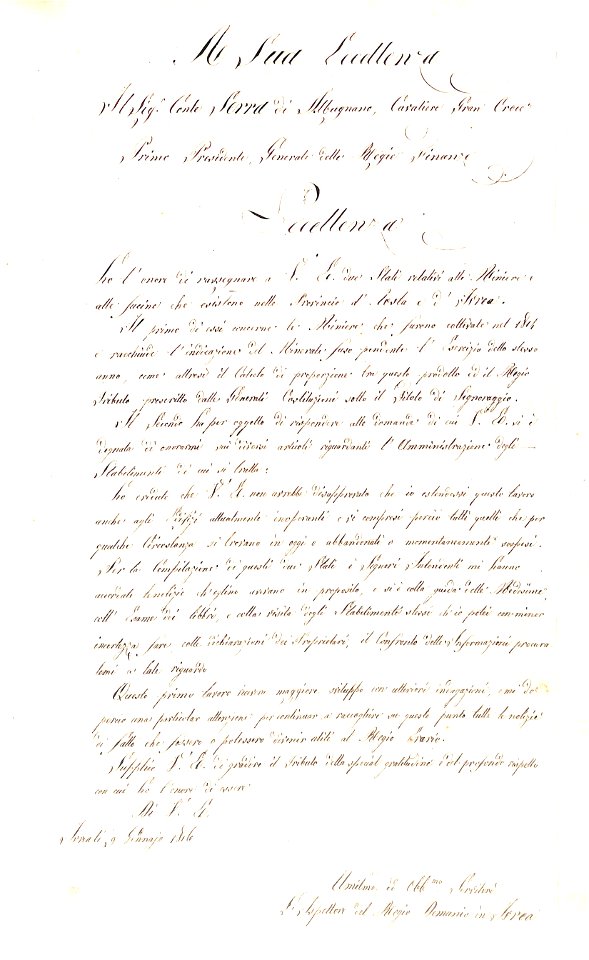 A Sua Eccellenza
Il Sig.r Conte Serra di Albugnano, Cavaliere Gran Croce
Primo Presidente, Generale delle Regie Finanze
Eccellenza
Ho l'onore di rassegnare a V. E. due Stati relativi alle Miniere e
alle fucine che esistono nelle Provincie d'Aosta e d'Ivrea.
Il primo di essi concerne le Miniere, che furono coltivate nel 1814
e racchiude l'indicazione del Minerale fuso pendente l'Esercizio dello stesso
anno, come altresì il Calcolo di proporzione tra questo prodotto ed il Regio
Tributo prescritto dalle Generali Costituzioni sotto il titolo di Signoraggio.
Il Secondo ha per oggetto di rispondere alle domande di cui V. E. si è
degnata di onorarmi sui diversi articoli riguardanti l'Amministrazione degli
Stabilimenti di cui si tratta.
Ho creduto che V. E. non avrebbe disapprovato che io estendessi questo lavoro
anche agli Edifizj attualmente inoperanti e vi compresi perciò tutti quelli che per
qualche Circostanza si trovano in oggi o abbandonati o momentaneamente sospesi.
Per la Compilazione di questi due Stati i Signori Intendenti mi hanno
le notizie ch'eglino avevano in proposito, e si è colla guida delle Medesime
coll'esame dei e colla visita degli Stabilimenti stessi ch'io potei con minor
incertezza fare colle dichiarazioni dei Proprietari, il Confronto delle Informazioni procura
temi a tale riguardo
Questo primo lavoro maggiore sviluppo con ulteriori indagazioni, e mi do
perciò una particolar attenzione per continuar a raccogliere su questo punto tutte le notizie
di fatto che fossero o potessero divenir utili al Regio Erario.
Supplico V. E. di gradire il tributo della special gratitudine e del profondo rispetto
con cui ho l'onore di essere
Di V. E.
Ivrea li 9 Gennajo 1816
Umilmo ed Obb.mo Servitore
L'Ispettore del Regio Demanio in Ivrea